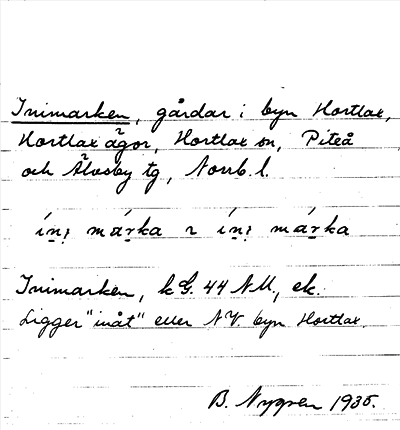 Inimarken, gårdar i byn Hortlax,
Hortlax ägor, Hortlax sn, Piteå
och Älvsby tg, Norrb. l.
íni márka ɿ íni márka
Inimarken, k G. 44 NU., ek.
Ligger "inåt" eller NV. byn Hortlax.
B. Nygren 1935.